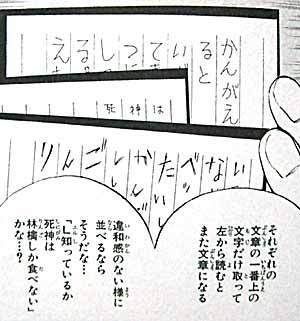 かんがえ
ると
い
て
つ
し
る
え
死神は
りんごしかたべない
それぞれの
文章の一番上の
文字だけ取って
左から読むと
また文章になる
違和感のない様に
並べるなら
そうだな…
「L知っているか
死神は
林檎しか食べない」
かな…?